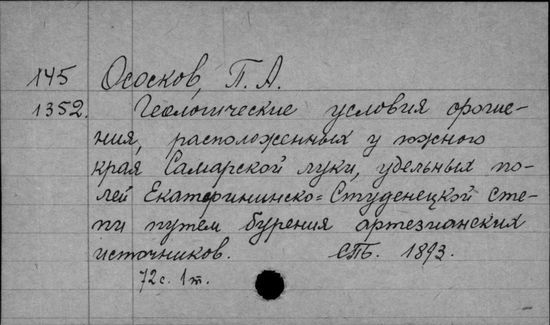 145 Ососков, П. А.
1352. Геологические условия ороше-
ния, расположенных у южного
края, Самарской луки, удельных по-
лей Екатерининско=Студенецкой сте-
пи путем бурения артезианских
источников. СПБ. 1893.
72 с. 1 т.